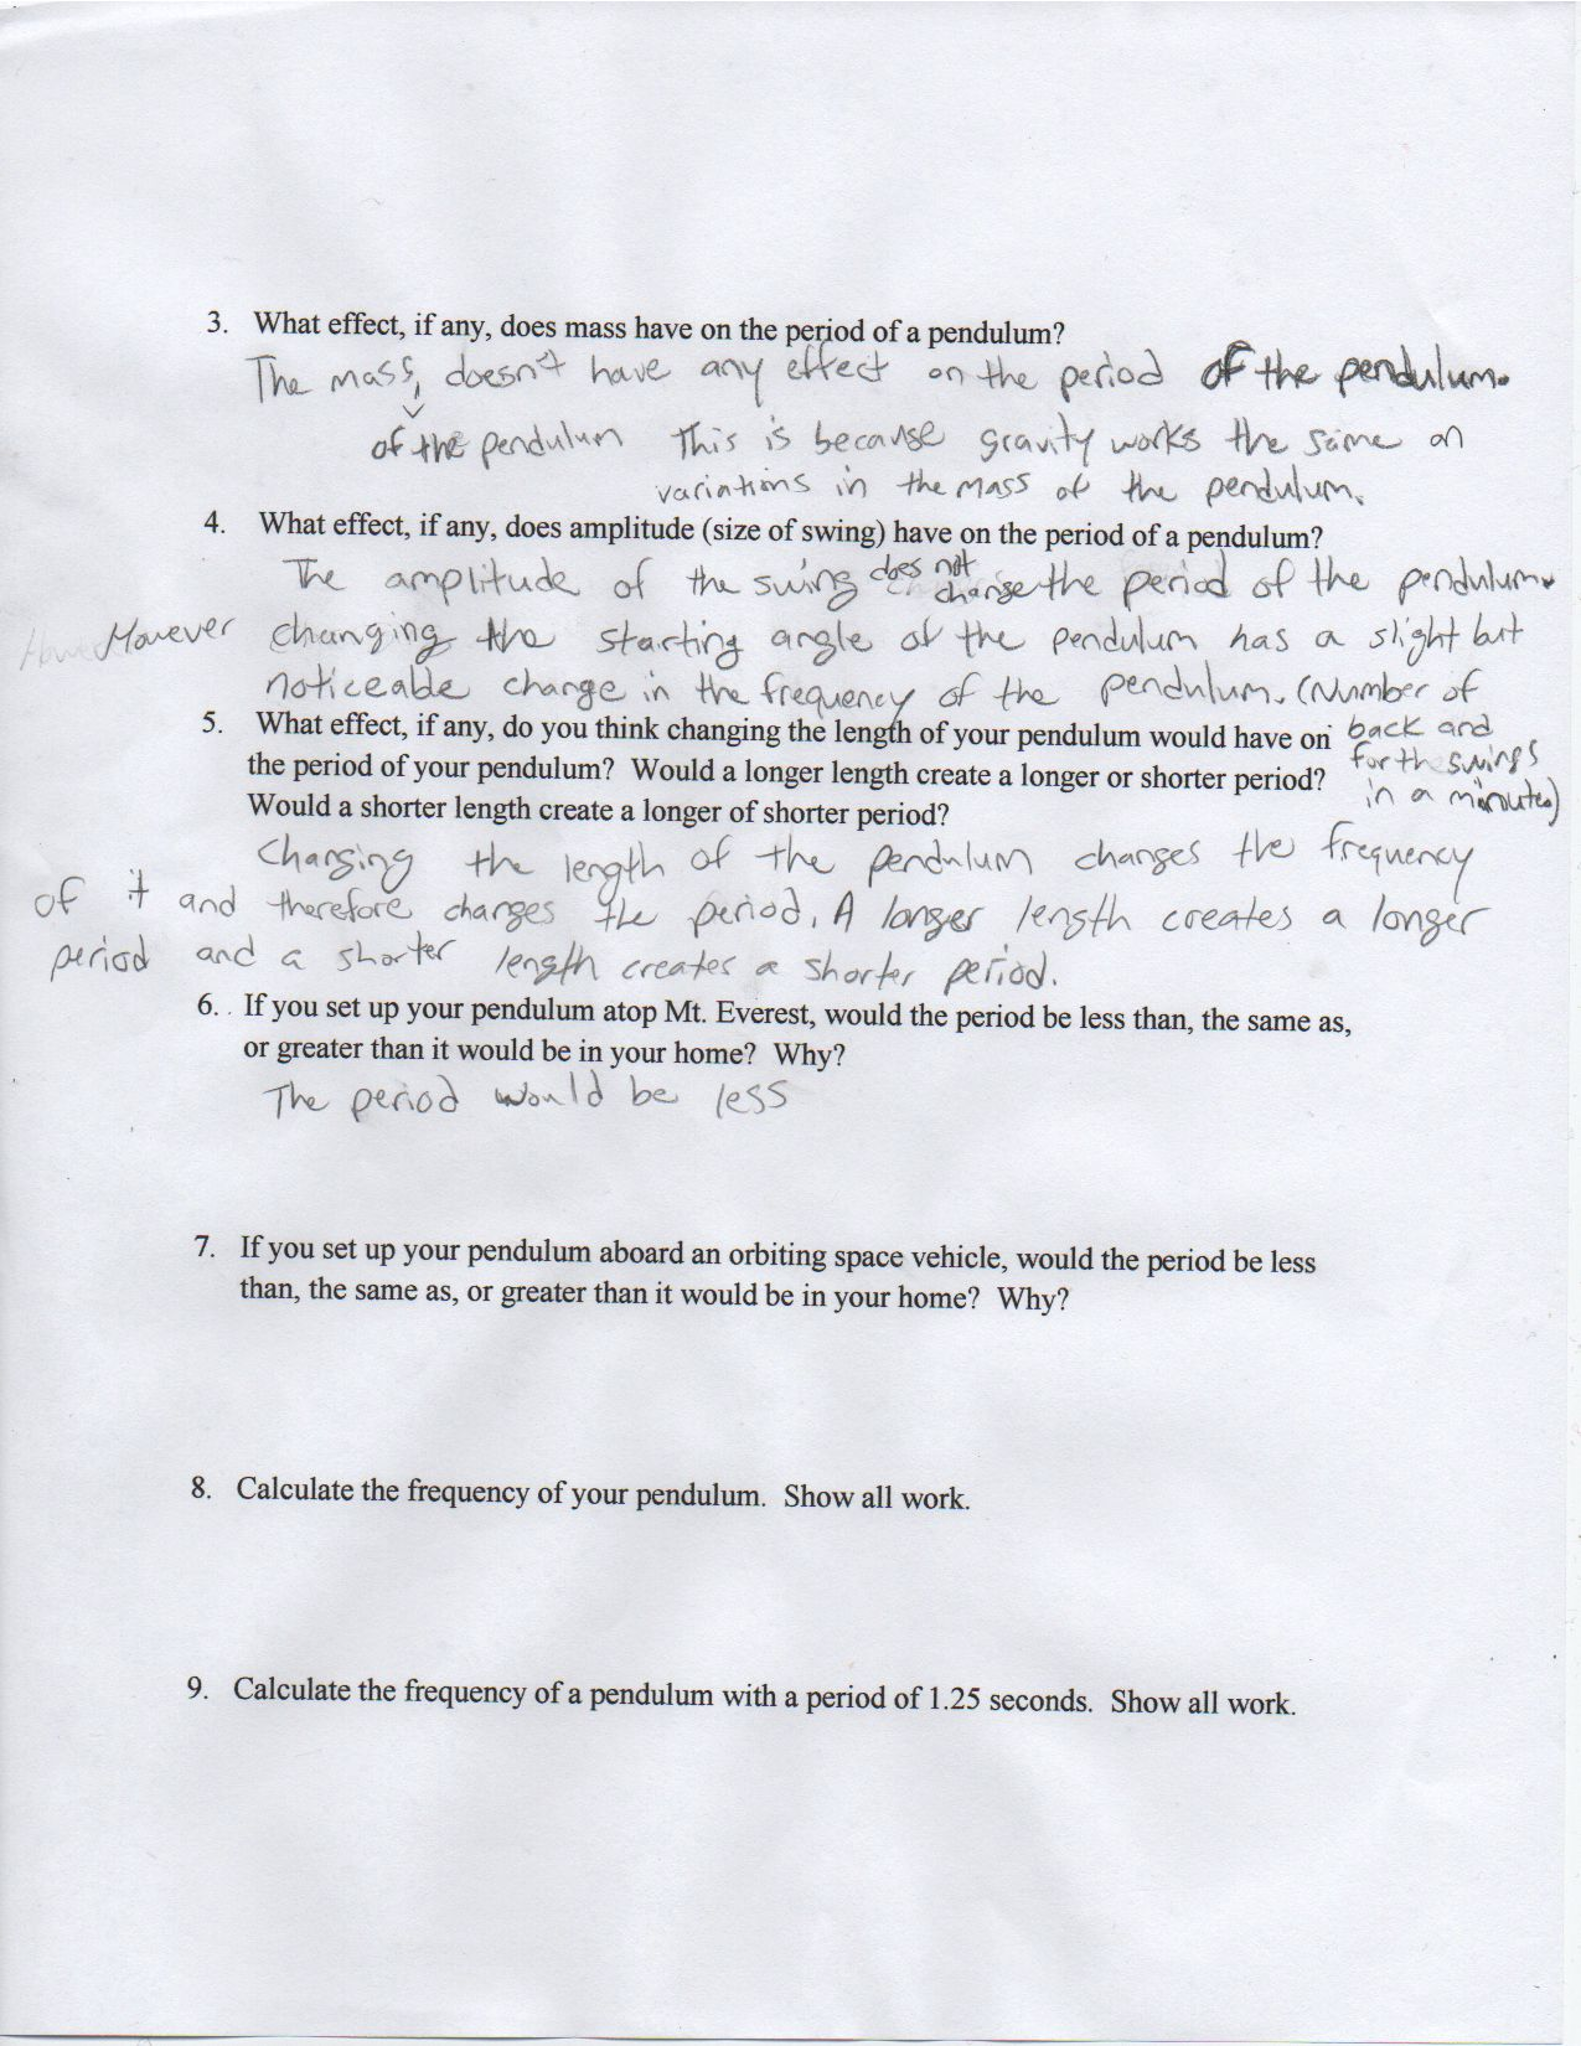 3. What effect, if any, does mass have on the period of a pendulum?
The mass, doesn't have any effect on the period of the pendulum.
of the pendulum This is because gravity works the same on
variations in the mass of the pendulum.
4. What effect, if any, does amplitude (size of swing) have on the period of a pendulum?
The amplitude of the swing does not change the period of the pendulum.
However changing the starting angle of the pendulum has a slight but
noticeable change in the frequency of the pendulum. (Number of
back and
forth swings
in a minute)
5. What effect, if any, do you think changing the length of your pendulum would have on
the period of your pendulum? Would a longer length create a longer or shorter period?
Would a shorter length create a longer of shorter period?
Changing the length of the pendulum changes the frequency
of it and therefore changes the period. A longer length creates a longer
period and a shorter length creates a shorter period.
6. . If you set up your pendulum atop Mt. Everest, would the period be less than, the same as,
or greater than it would be in your home? Why?
The period would be less
7. If you set up your pendulum aboard an orbiting space vehicle, would the period be less
than, the same as, or greater than it would be in your home? Why?
8. Calculate the frequency of your pendulum. Show all work.
9. Calculate the frequency of a pendulum with a period of 1.25 seconds. Show all work.